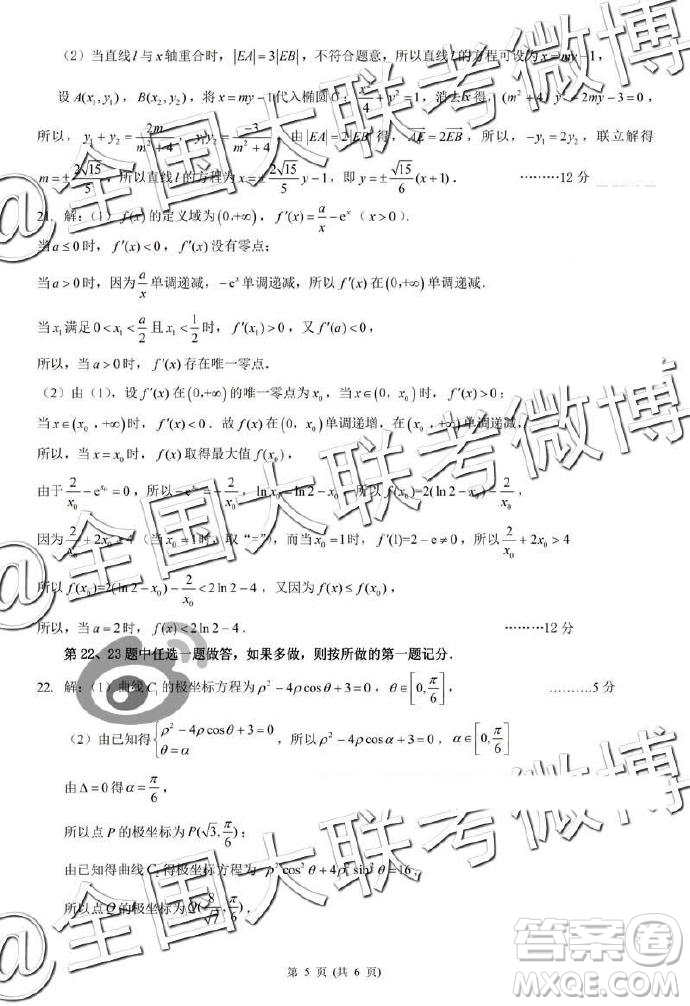 (2) 当直线 l 与 x 轴重合时, |EA|=3|EB|, 不符合题意, 所以直线 l 的方程可设为 x=my−1,
设 A(x₁,y₁), B(x₂,y₂), 将 x=my−1 代入椭圆 : x²/4+y²=1, 消去 x 得, (m²+4)y²−2my−3=0,
所以, y₁+y₂=2m/(m²+4), y₁y₂=−3/(m²+4), 由 |EA|=2|EB| 得, AE=2EB, 所以, −y₁=2y₂, 联立解得
m=±2√15/5, 所以直线 l 的方程为 x=±2√15/5 y−1, 即 y=±√15/6 (x+1). ………12 分
21. 解: (1) f(x) 的定义域为 (0,+∞), f′(x)=a/x−eˣ (x>0).
当 a≤0 时, f′(x)<0, f′(x) 没有零点;
当 a>0 时, 因为 a/x 单调递减, −eˣ 单调递减, 所以 f′(x) 在 (0,+∞) 单调递减.
当 x₁ 满足 0<x₁<a/2 且 x₁<1/2 时, f′(x₁)>0, 又 f′(a)<0,
所以, 当 a>0 时, f′(x) 存在唯一零点.
(2) 由 (1), 设 f′(x) 在 (0,+∞) 的唯一零点为 x₀, 当 x∈(0, x₀) 时, f′(x)>0;
当 x∈(x₀,+∞) 时, f′(x)<0. 故 f(x) 在 (0, x₀) 单调递增, 在 (x₀,+∞) 单调递减,
所以, 当 x=x₀ 时, f(x) 取得最大值 f(x₀),
由于 2/x₀−e^x₀=0, 所以 −e^x₀=−2/x₀, ln x₀=ln 2−x₀, 所以 f(x₀)=2(ln 2−x₀)−2/x₀,
因为 2/x₀+2x₀≥4 (当 x₀=1 时, 取 “=”), 而当 x₀=1 时, f′(1)=2−e≠0, 所以 2/x₀+2x₀>4
所以 f(x₀)=2(ln 2−x₀)−2/x₀<2ln 2−4, 又因为 f(x)≤f(x₀),
所以, 当 a=2 时, f(x)<2ln 2−4. ………12 分
第 22、23 题中任选一题做答, 如果多做, 则按所做的第一题记分.
22. 解: (1) 曲线 C₁ 的极坐标方程为 ρ²−4ρcosθ+3=0, θ∈[0,π/6], ……….5 分
(2) 由已知得 {ρ²−4ρcosθ+3=0
θ=α , 所以 ρ²−4ρcosα+3=0, α∈[0,π/6]
由 Δ=0 得 α=π/6,
所以点 P 的极坐标为 P(√3,π/6);
由已知得曲线 C₂ 得极坐标方程为 ρ²cos²θ+4ρ²sin²θ=16,
所以点 Q 的极坐标为 Q(8/√7,π/6).
第 5 页 (共 6 页)
@全国大联考微博
@全国大联考微博
@全国大联考微博
答案卷
MXQE.COM